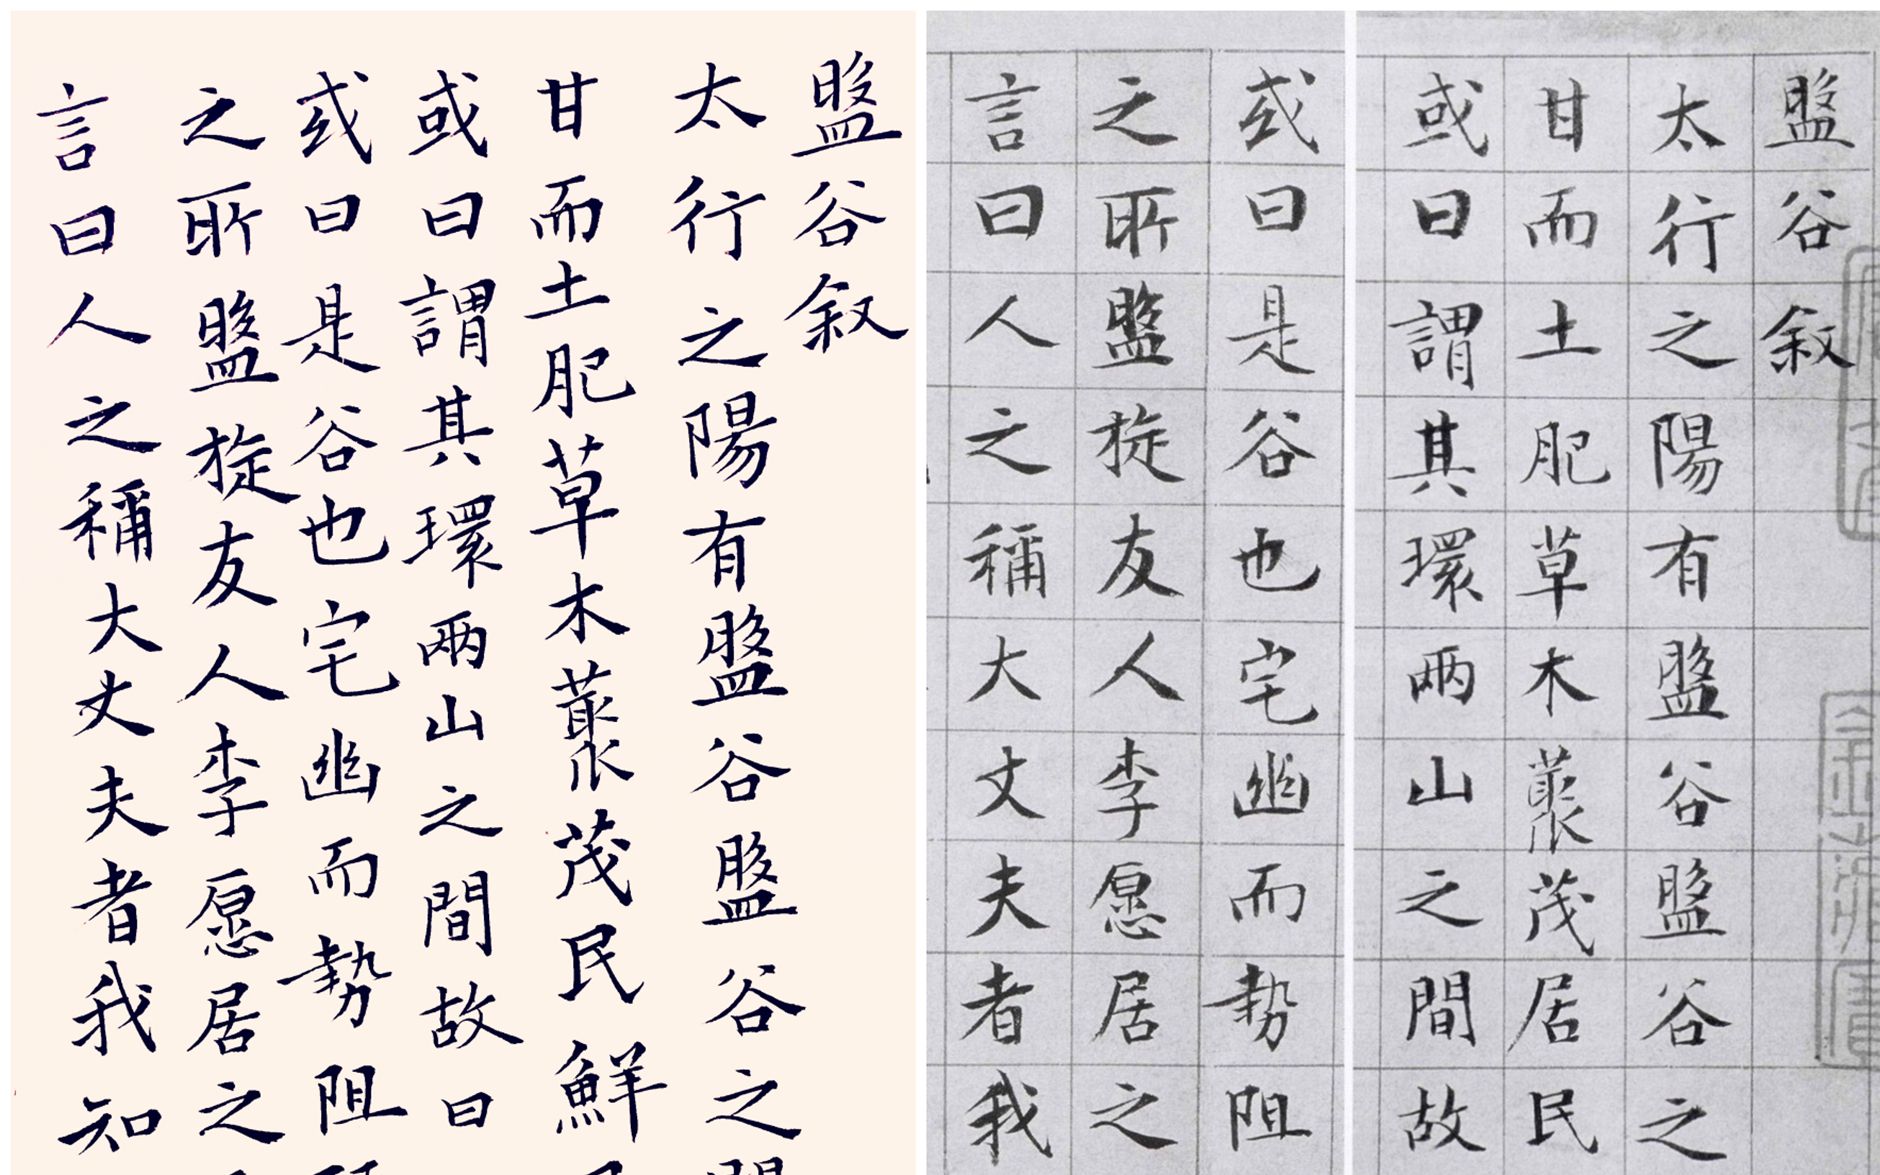 盤谷叙
太行之陽有盤谷盤谷之
甘而土肥草木藂茂民鮮
或曰謂其環兩山之間故曰
或曰是谷也宅幽而勢阻
之所盤旋友人李愿居之
言曰人之稱大丈夫者我知
盤谷叙
太行之陽有盤谷盤谷之
甘而土肥草木藂茂居民
或曰謂其環兩山之間故
或曰是谷也宅幽而勢阻
之所盤旋友人李愿居之
言曰人之稱大丈夫者我